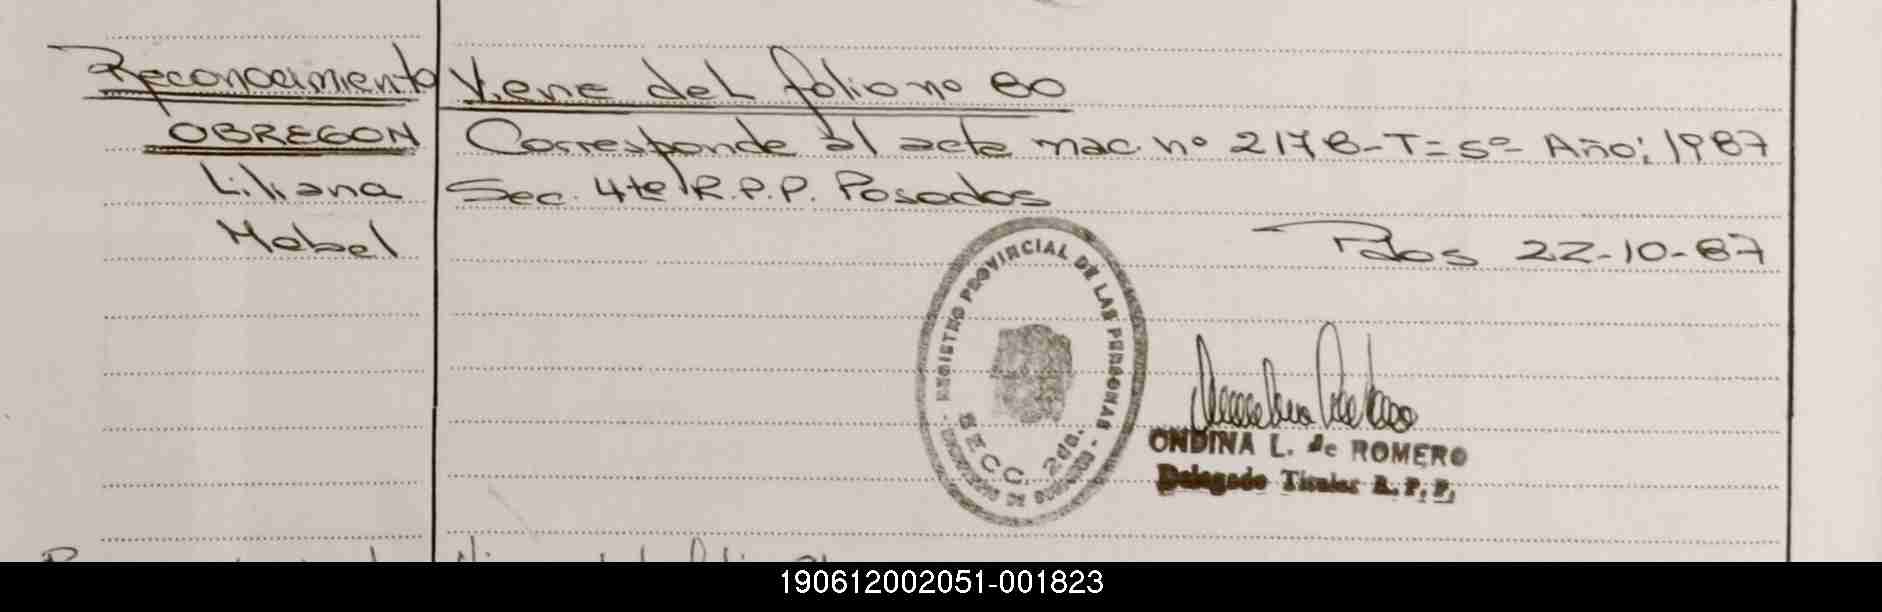 Reconocimiento
OBREGON
Liliana
Mabel
Viene del folio no 80
Corresponde al acta nac. no 2178-T=5º- Año: 1987
Sec. 4ta R.P.P. Posadas
Pdas 22-10-87
REGISTRO PROVINCIAL DE LAS PERSONAS
SECC. 2da.
ONDINA L. de ROMERO
Delegado Titular R. P. P.
190612002051-001823